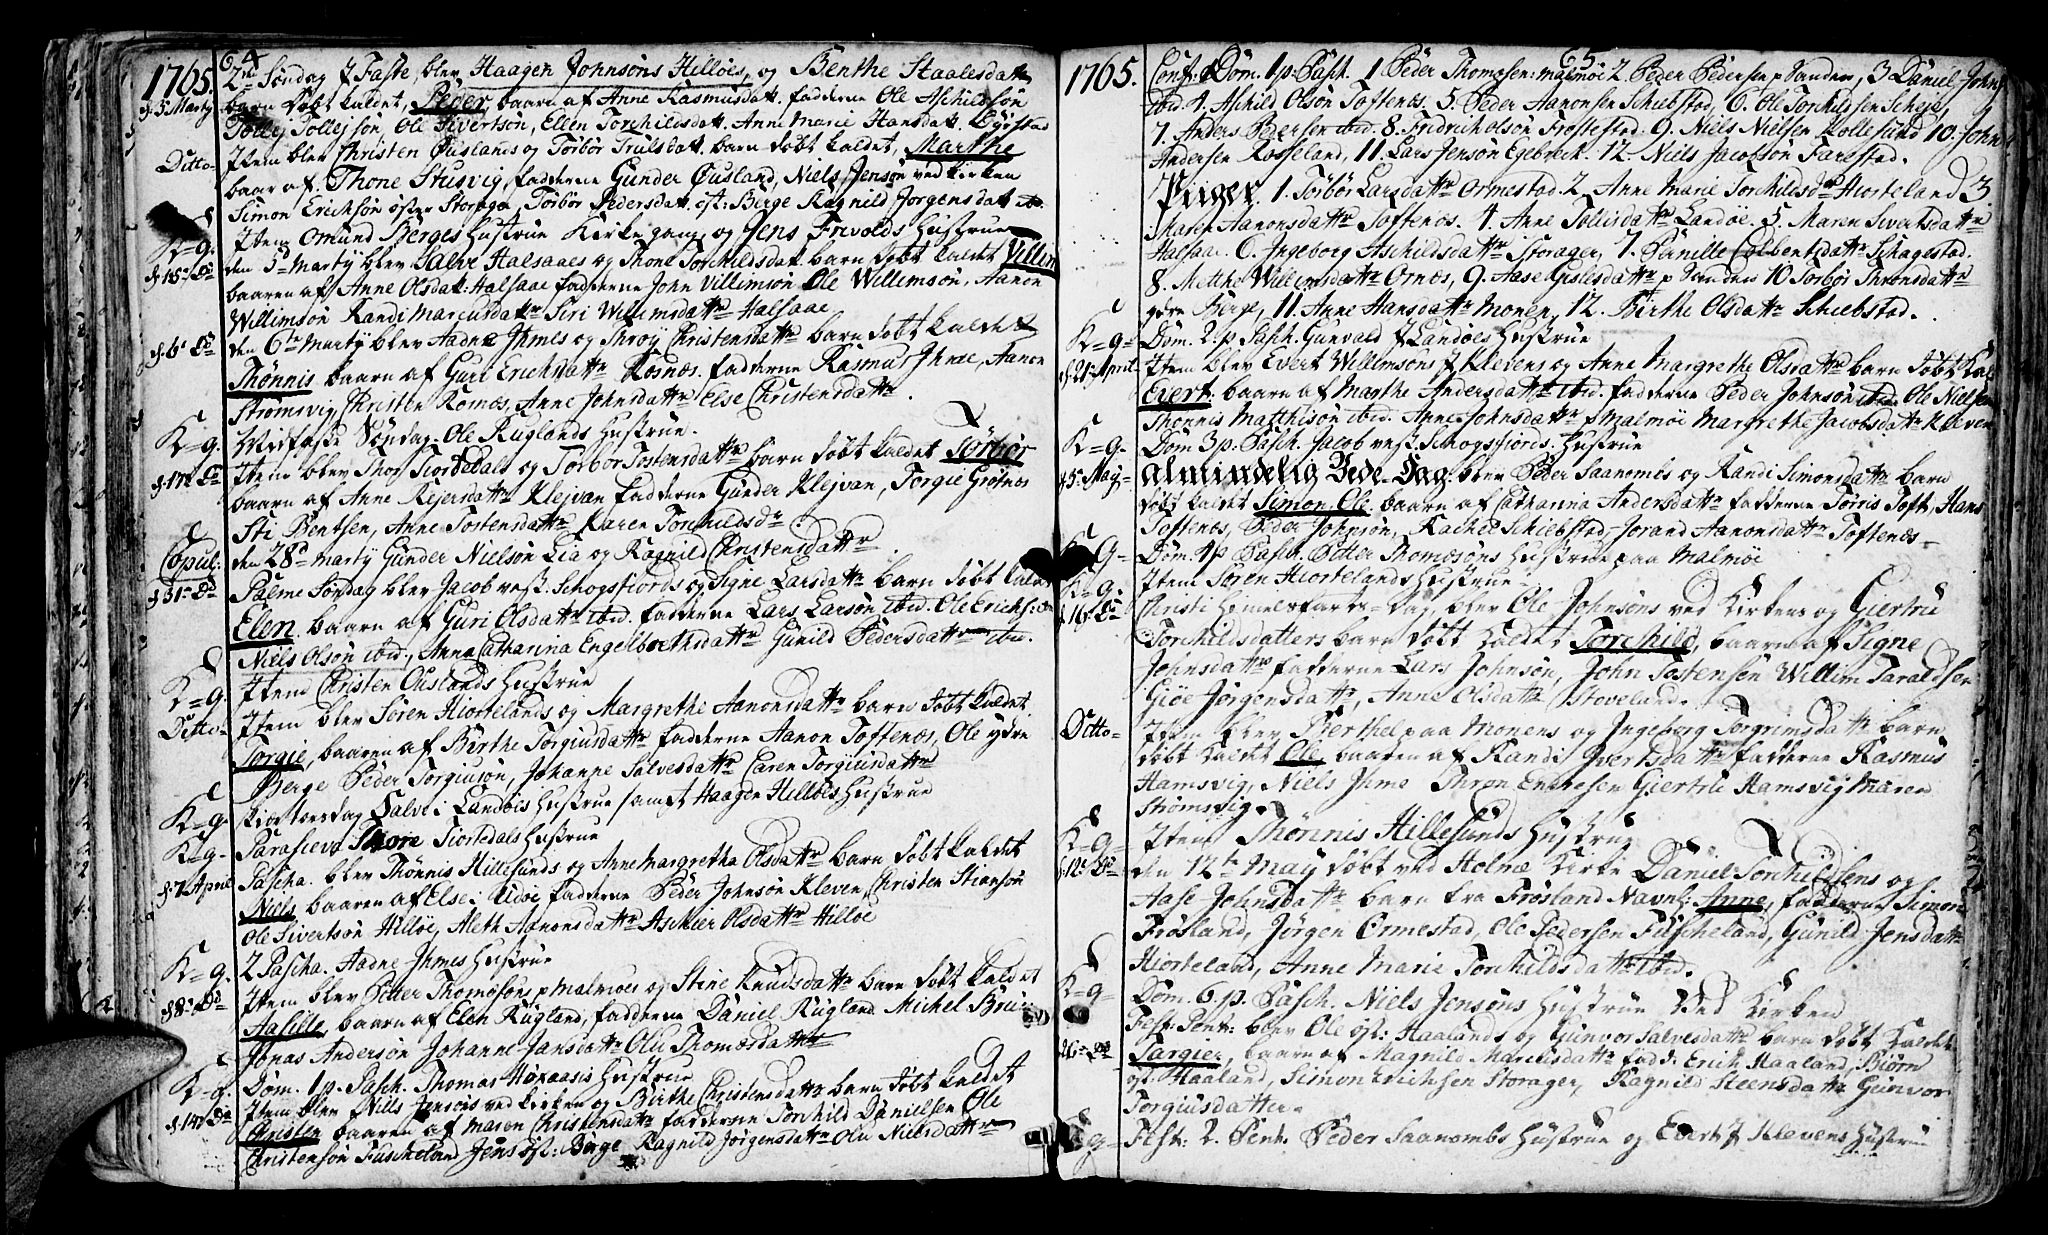 64
1765. 2den Søndag j Faste, blev Haagen Johnsøns Hilløes, og Benthe Staalesdattr
barn døbt kaldet, Peder baaren af Anne Rasmusdatt. fadderne Ole Aschildsøn
Tollej Tollejsøn, Ole Sivertsøn, Ellen Torchildsdatt. Anne Marie Hansdatt.
Ditto- Jtem blev Christen Øuslands og Torbør Trulsdatt. barn døbt kaldet, Marthe
baar af. Thone Stusvig, fadderne Gunder Øusland, Niels Jensøn ved kirken
Simon Erichsøn Storager, Torbør Pedersdatt. øst: Berge Ragnild Jørgensdatt ib.
K=g. Jtem Omund Berges Hustrue Kirkegang, og Jens Frivolds Hustrue
den 5d Marty blev Salve Halsaaes og Thone Torchildsdatt. barn døbt kaldet Villim
baaren af Anne Olsdatt: Halsaae fadderne John Villimsøn Ole Willimsøn, Aanon
Willimsøn Randi Marcusdattr Siri Willimsdattr Halsaae
d. 6t Do den 6te Marty blev Aadne Jhmes og Throy Christensdattr barn døbt kaldet
Thønnis baaren af Guri Erichsdattr Rosnæs. fadderne Rasmus Jhme, Aanon
Strømsvig, Christen Romæs, Anne Johnsdattr Else Christensdattr.
K=g. Midfaste Søndag. Ole Ruglands Hustrue.
d. 17de Do Jtem blev Thor Tiordals og Torbør Tostensdattr barn døbt kaldet Torbør
baaren af Anne Rejersdattr Klejvan fadderne Gunder Klejvan, Torgie Grøsnes
Sti Bentsen, Anne Tostensdattr Karen Torchildsdr.
Copul: den 28d Marty Gunder Nielsøn Lia og Ragnild Christensdattr.
d. 31t Do Palme Søndag blev Jacob vest. Schogsfiords og Signe Larsdattr barn døbt kaldet
Elen. baaren af Guri Olsdattr ibid. fadderne Lars Larsøn ibid. Ole Erichs:
Niels Olsøn ibid., Anna Catharina Engelbrethsdattr Gunild Pedersdattr ibid.
K=g. Jtem Christen Ouslands Hustrue
Ditto- Jtem blev Søren Hiortelands og Margrethe Aanonsdattr barn døbt kaldet
Torgie, baaren af Berthe Torgiusdattr fadderne Aanon Toftenæs, Ole ydre
Berge Peder Torgiusøn, Johanne Salvesdattr Caren Torgiusdattr
K=g. Skiertorsdag Salve i Landøis Hustrue samt Haagen Hilløes Hustrue
K=g. Parasceve Thore Tiortedals Hustrue
d. 7 April Pascha. blev Thønnis Hillesunds og Anne Margretha Olsdattr barn døbt kaldet
Niels baaren af Else i Udøe fadderne Peder Johnsøn Kleven, Christen Stiansøn
Ole Sivertsøn Hilløe, Aleth Aanonsdattr Aschier Olsdattr Hilløe
K=g. 2 Pascha. Aadne Jhmes Hustrue
d. 8t Do Jtem blev Petter Thomesøns p Malmøe og Stine Knudsdattr barn døbt kaldet
Aasille, baaren af Elen Rugland, fadderne Daniel Rugland Michel Bru
Jonas Andersøn Johanne Jansdattr Olu Thomasdattr
K=g. Dom. 1 p. Pasch. Thomas Høyaasis Hustrue
d. 14d Do Jtem blev Nills Jensøns ved kirken og Birthe Christensdattr barn døbt kaldet
Christen baaren af Maren Christensdattr fadderne Torchild Danielsen Ole
Christensøn Fuscheland Jens øst: Berge Ragnild Jørgensdattr Olu Nielsdattr
65
1765. Conf: Dom. 1 p. Pasch. 1 Peder Thomesen: Malmøe 2. Peder Pedersen p Sanden, 3 Daniel Johns
ibid. 4. Aschild Olsøn Toftenæs. 5. Peder Aanonsen Schiebstad, 6. Ole Torchildsen Scheje
7. Anders Bersen ibid. 8. Fridrich Olsøn Frostestad. 9. Niels Nielsen Kollesund 10. John
Andersen Rosseland, 11. Lars Jensøn Egebreck. 12. Niels Jacobsøn Farestad.
Piiger. 1. Torbør Larsdattr Ormestad 2. Anne Marie Torchildsdr Hiorteland 3.
Maren Aanonsdattr Toftenæs. 4. Anne Tollisdattr Landøe. 5. Maren Sivertsdattr
Halsaa. 6. Ingeborg Aschildsdattr Storager, 7. Pernille Colbentsdattr Schagestad.
8. Metthe Willimsdattr Ornæs, 9. Aase Gislesdattr p Sanden 10 Torbør Thronsdattr
ydre Berge, 11. Anne Hansdattr Monen, 12. Birthe Olsdattr Schiebstad.
K=g= Dom. 2. p Pasch. Gunvald j Landøes Hustrue
d. 21t April Jtem blev Evert Willimsøns j Klevens og Anne Margrethe Olsdattr barn døbt kal
Evert: baaren af Marthe Andersdattr ibid. fadderne Peder Johnsøn ibid. Ole Nielsen
Thønnis Matthisøn ibid. Anne Johnsdattr p Malmøe Margrethe Jacobsdattr Kleven
K=g. Dom 3 p. Pasch. Jacob vest. Schogsfiords Hustrue
d. 5t May= Almindelig Bede-Dag: blev Peder Saanomes og Randi Simonsdattr barn
døbt kaldet Simon Ole baaren af Catharina Andersdattr fadderne Tørris Toft, Hans
Toftenæs, Peder Johnsøn, Rachel Schiebstad Jorand Aanonsdattr Toftenæs-
K=g- Dom. 4 p Pasch. Petter Thomæsøns Hustrue paa Malmøe
K=g. Jtem Søren Hiortelands Hustrue-
d. 16t Do Christi Himelsfarts-Dag, blev Ole Johnsøns ved Kirken og Giertru
Torchildsdatters barn døbt kaldet Torchild, baaren af Signe
Johnsdattr fadderne Lars Johnsøn, John Tostensøn Willim Taraldsen
Giøe Jørgensdattr, Anne Olsdattr Stoveland.
Ditto- Jtem blev Berthel paa Monens og Ingeborg Torgrimsdattr barn
døbt kaldet Ole, baaren af Randi Jvertsdattr fadderne Rasmus
Hamsvig, Niels Jhme Thron Endresen Giertru Hamsvig Maren
Strømsvig.
K=g= Jtem Thønnis Hillesunds Hustrue
d. 12t Do den 12te May døbt ved Holmæ Kirke Daniel Torchildsens og
Aase Johnsdattr barn fra Frøsland Navnl: Anne, fadderne Simon
Frøsland, Jørgen Ormestad, Ole Pedersen Fuscheland, Gunild Jensdattr
Hiorteland, Anne Marie Torchildsdattr ibid.
K=g= Dom. 6. p. Pasch. Niels Jensøns Hustrue Ved Kirken
26t Do Fest: Pent: blev Ole øst: Haalands og Gunvor Salvesdattr barn døbt kaldet
Targier, baaren af Magnild Marchsdattr fadd: Erich Haaland, Biørn
øst: Haaland, Simon Erichsen Storager, Ragnild Steensdattr Gunvor
Torgiusdatter.
K=g= Fest: 2. Pent. Peder Saanombs Hustrue og Evert j Klevens Hustrue